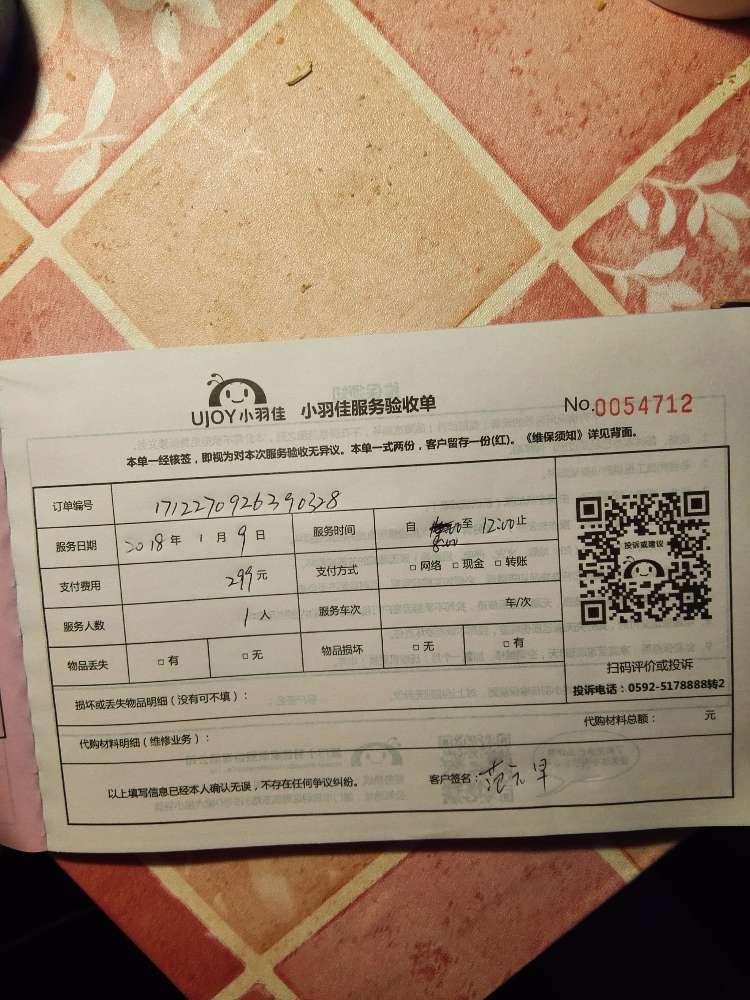 UJOY小羽佳 小羽佳服务验收单 No.0054712
本单一经核签，即视为对本次服务验收无异议。本单一式两份，客户留存一份(红)。《维保须知》详见背面。
订单编号 1712270926390328
服务日期 2018年 1月 9日 服务时间 自 8:00至 12:00止
支付费用 299元 支付方式 □ 网络 □ 现金 □ 转账
服务人数 1人 服务车次 车/次
物品丢失 □ 有 □ 无 物品损坏 □ 无 □ 有
投诉或建议
扫码评价或投诉
投诉电话：0592-5178888转2
损坏或丢失物品明细（没有可不填）：
代购材料明细（维修业务）： 代购材料总额： 元
以上填写信息已经本人确认无误，不存在任何争议纠纷。 客户签名：范元早